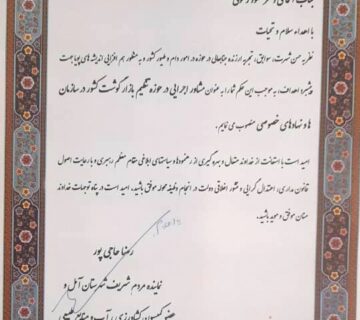 با اهداء سلام و تحیات
نظر به حسن شهرت، سوابق، تجربه ارزنده جنابعالی در حوزه امور دام و طیور کشور و به منظور هم افزایی اندیشه های پویا جهت
پیشبرد اهداف، به موجب این حکم شما را به عنوان مشاور اجرایی در حوزه تنظیم بازار گوشت کشور در سازمان
ها و نهادهای خصوصی منصوب می نمایم.
امید است با استعانت از خداوند متعال و بهره گیری از رهنمودها و سیاستهای ابلاغی مقام معظم رهبری و با رعایت اصول
قانون مداری، اعتدال گرایی و منشور اخلاقی دولت در انجام وظیفه محوله موفق باشید. امید است در پناه توجهات خداوند
منان موفق و موید باشید.
رضا حاجی پور
نماینده مردم شریف شهرستان آمل و
عضو کمیسیون کشاورزی، آب و منابع طبیعی